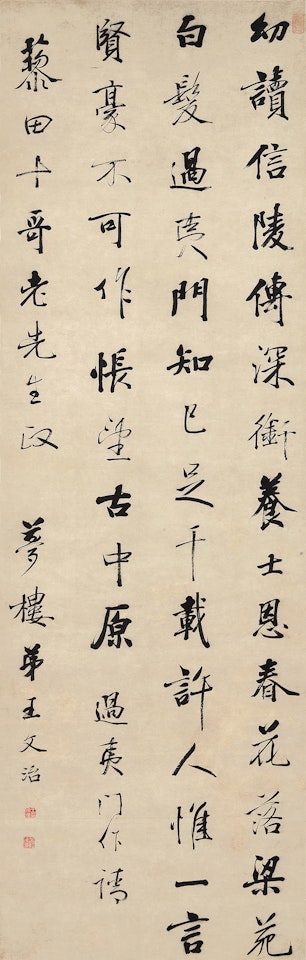 幼讀信陵傳深銜養士恩春花落梁苑
白髮過夷門知己足千載許人惟一言
賢豪不可作悵望古中原 過夷門作請
藜田十哥老先生政 夢樓弟王文治